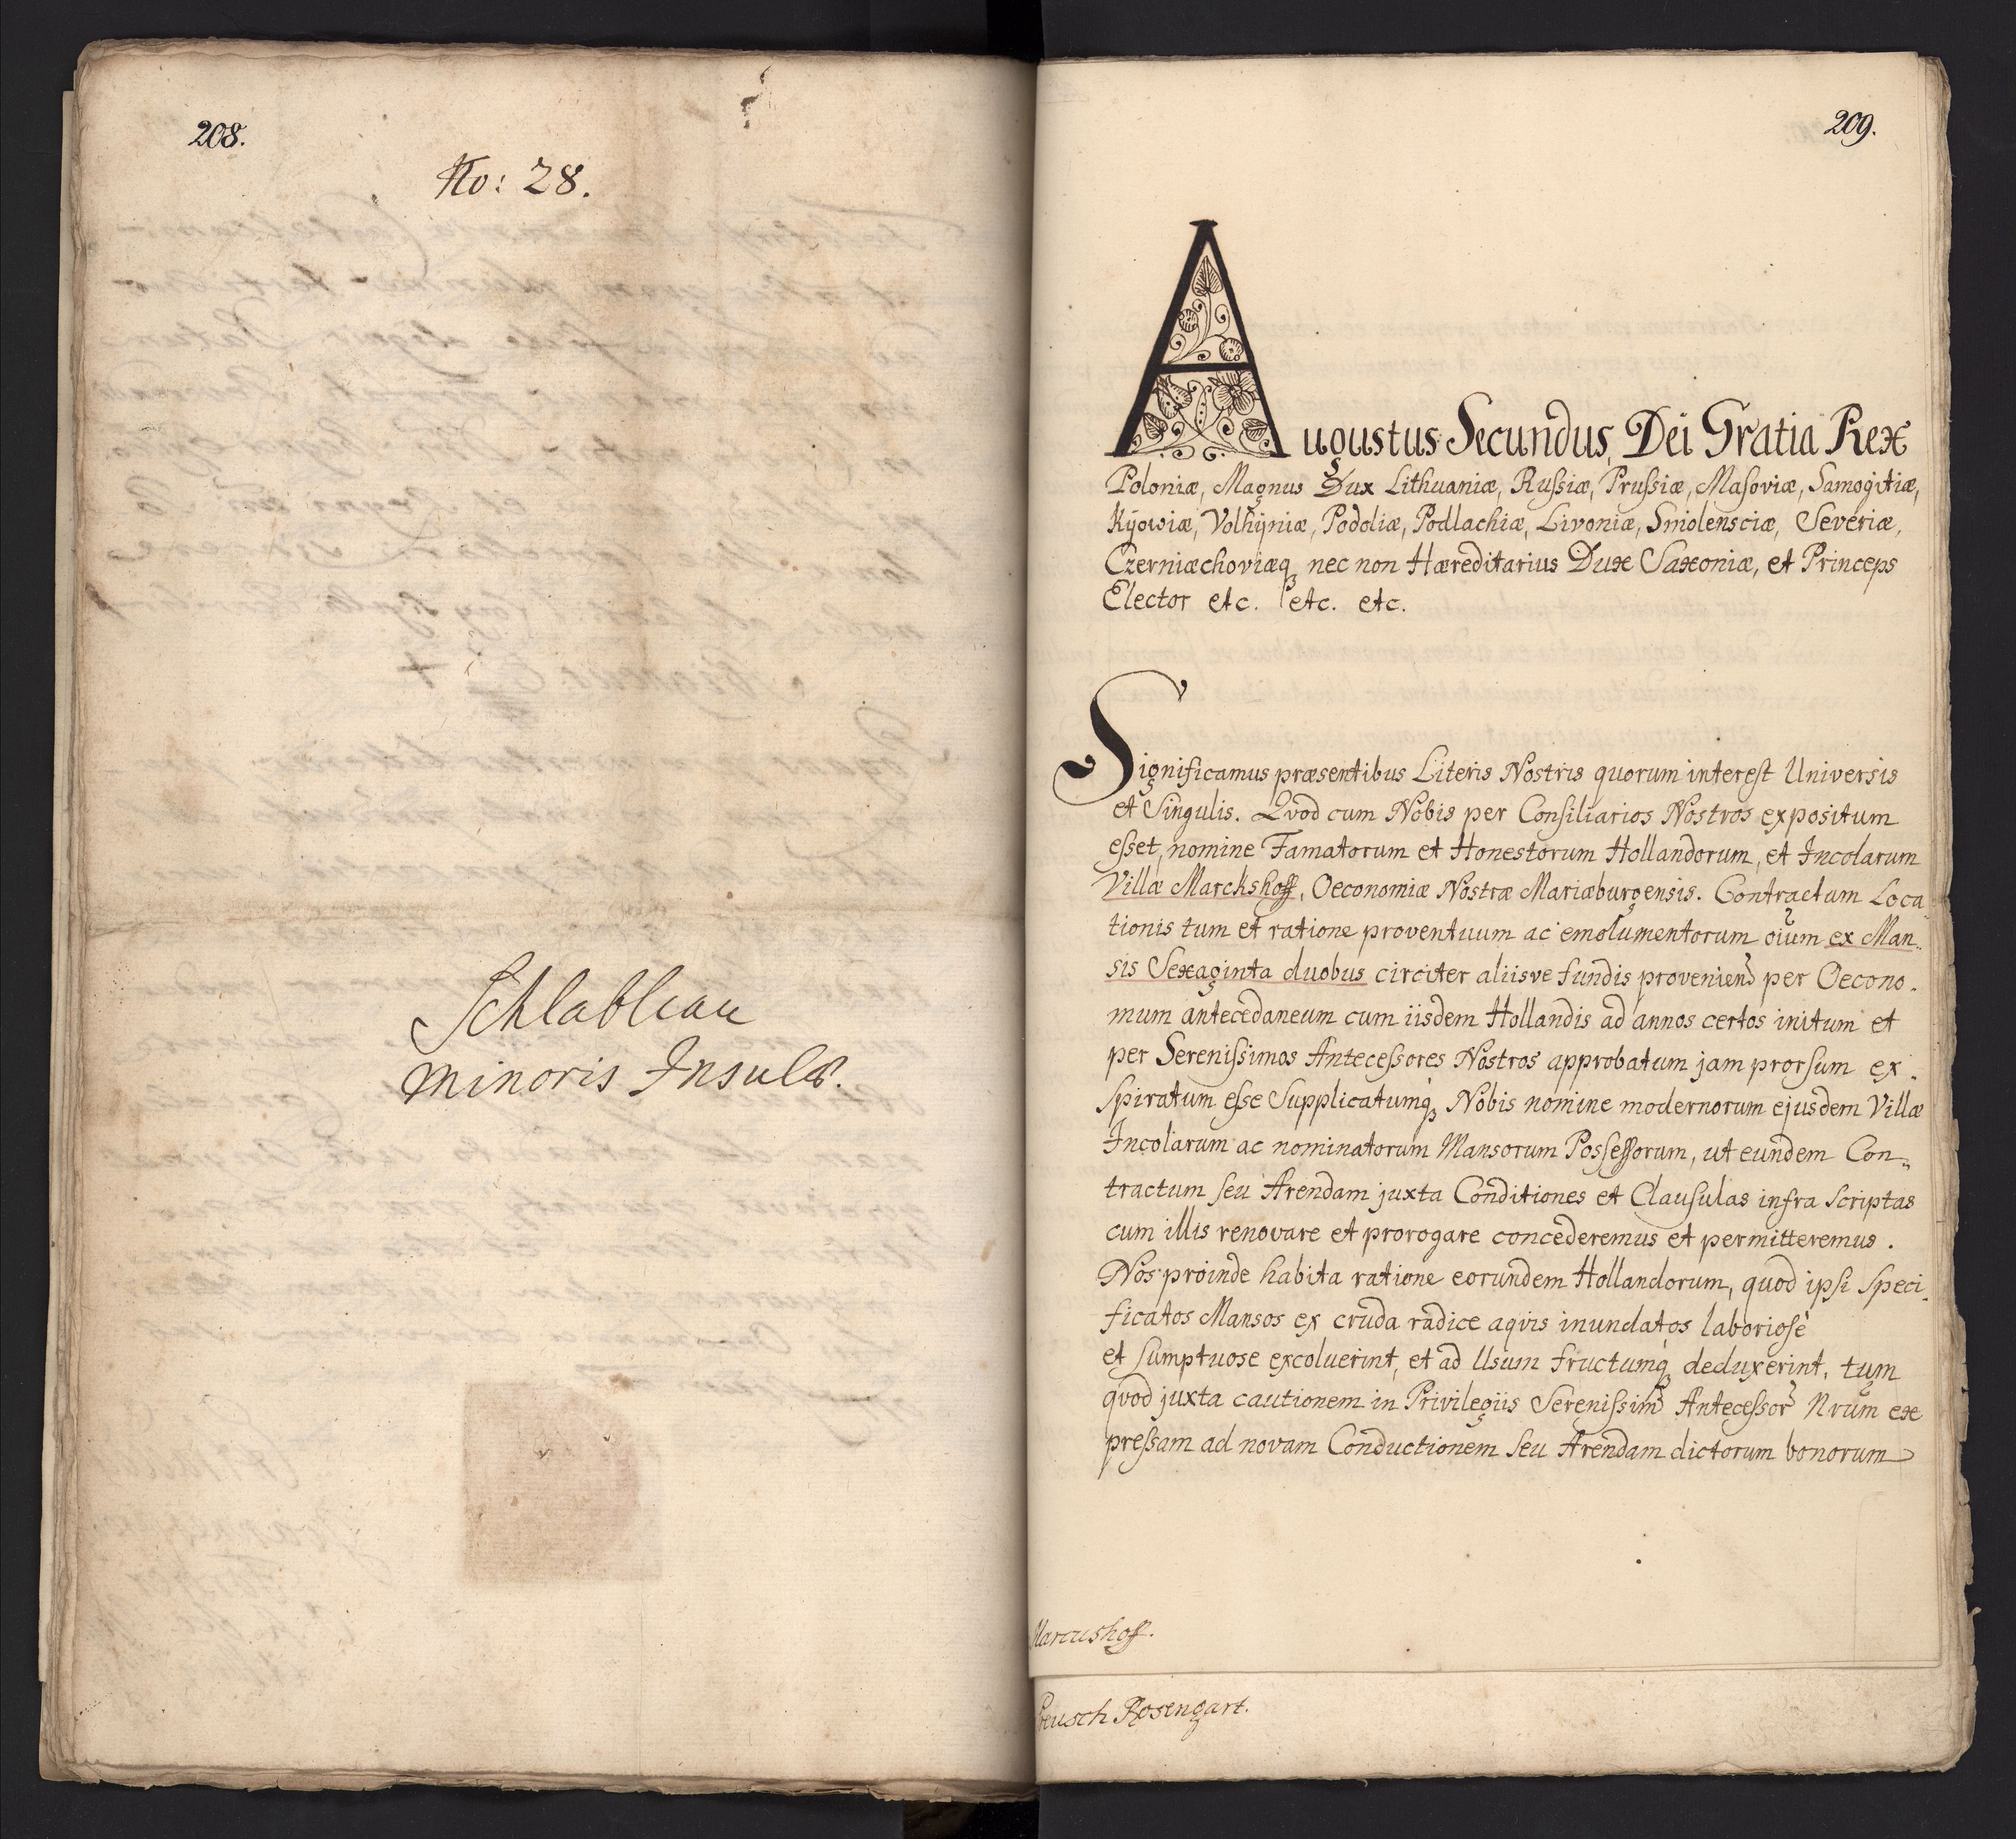 208.
No: 28.
Schlablau
minoris Insulæ.
209.
Augustus Secundus, Dei Gratia Rex
Poloniæ, Magnus Dux Lithuaniæ, Russiæ, Prussiæ, Masoviæ, Samogitiæ,
Kÿowiæ, Volhÿniæ, Podoliæ, Podlachiæ, Livoniæ, Smolensciæ, Severiæ,
Czerniæchoviæq, nec non Hæreditarius Dux Saxoniæ, et Princeps
Elector etc. etc. etc.
Significamus præsentibus Literis Nostris quorum interest Universis
et Singulis. Qvod cum Nobis per Consiliarios Nostros expositum
esset, nomine Famatorum et Honestorum Hollandorum, et Incolarum
Villæ Marckshoff, Oeconomiæ Nostræ Mariæburgensis. Contractum Loca-
tionis tum et ratione proventuum ac emolumentorum oium ex Man-
sis Sexaginta duobus circiter aliisve fundis proveniend per Oecono-
mum antecedaneum cum iisdem Hollandis ad annos certos initum et
per Serenissimos Antecessores Nostros approbatum jam prorsum ex-
spiratum esse Supplicatumq, Nobis nomine modernorum ejusdem Villæ
Incolarum ac nominatorum Mansorum Possessorum, ut eundem Con-
tractum seu Arendam juxta Conditiones et Clausulas infra scriptas
cum illis renovare et prorogare concederemus et permitteremus.
Nos proinde habita ratione eorundem Hollandorum, quod ipsi speci-
ficatos Mansos ex cruda radice aqvis inundatos laboriosè
et sumptuose excoluerint, et ad Usum fructumq, deduxerint, tum
qvod juxta cautionem in Privilegiis Serenissim Antecessor Nrum ex
pressam ad novam Conductionem seu Arendam dictorum bonorum
Marcushoff.
Preusch Rosengart.